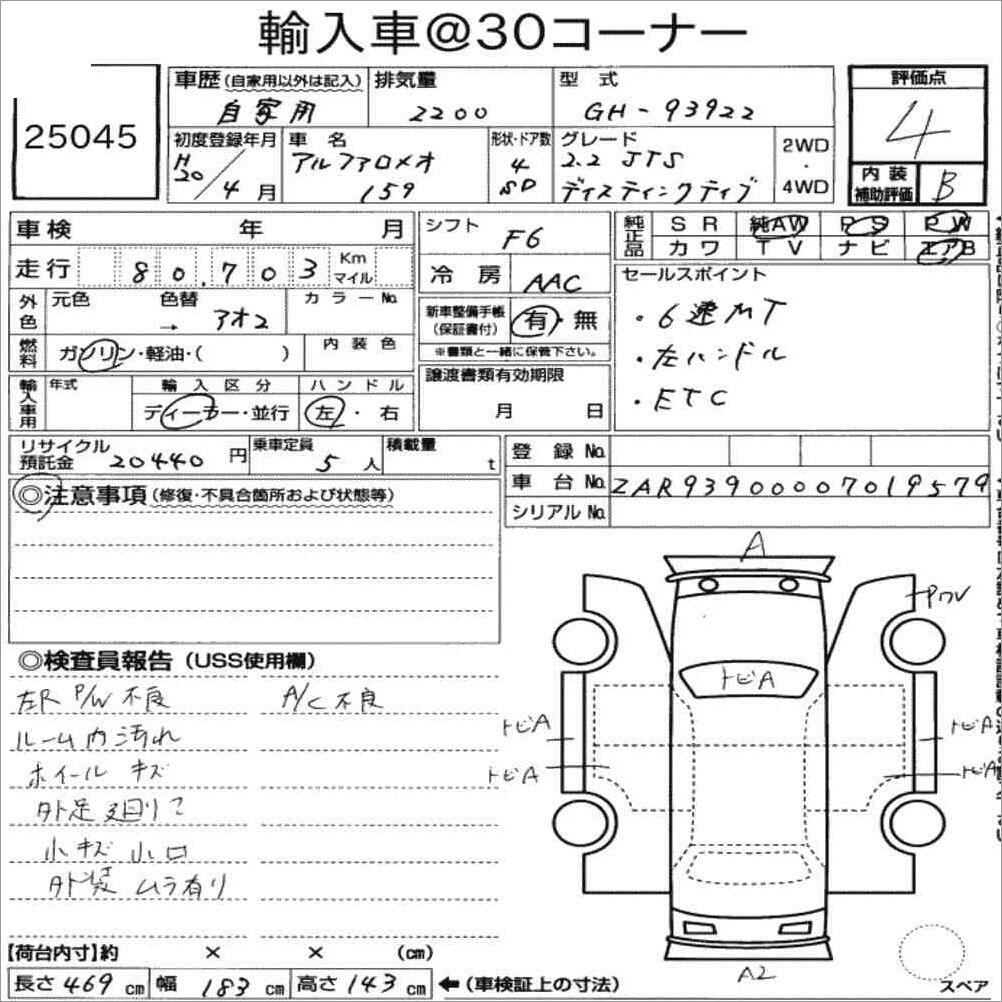 輸入車@30コーナー
25045
車歴(自家用以外は記入) 排気量 型式 評価点
自家用 2200 GH-93922 4
初度登録年月 車名 形状・ドア数 グレード 2WD・4WD
H20/4月 アルファロメオ 159 4 SD 2.2 JTS ディスティンクティブ
内装補助評価 B
車検 年 月 シフト F6
純正品 SR 純AW PS PW
カワ TV ナビ エアB
走行 80,703 Km マイル
冷房 AAC
セールスポイント
・6速MT
・左ハンドル
・ETC
外色 元色 色替 → アオ2 カラーNo.
新車整備手帳(保証書付) 有・無
※書類と一緒に保管下さい。
燃料 ガソリン・軽油・( ) 内装色
譲渡書類有効期限
月 日
輸入車用 年式 輸入区分 ハンドル
ディーラー・並行 左・右
リサイクル預託金 20440円 乗車定員 5人 積載量 t
登録No.
車台No. ZAR93900007019579
シリアルNo.
◎注意事項(修復・不具合箇所および状態等)
◎検査員報告(USS使用欄)
左R P/W不良 A/C不良
ルーム内汚れ
ホイールキズ
外足廻りコ
小キズ小凹
外装ムラ有り
A
Pワレ
トビA
トビA
トビA
トビA
トビA
A2
スペア
【荷台内寸】約 × × (cm)
長さ469cm 幅183cm 高さ143cm ←(車検証上の寸法)